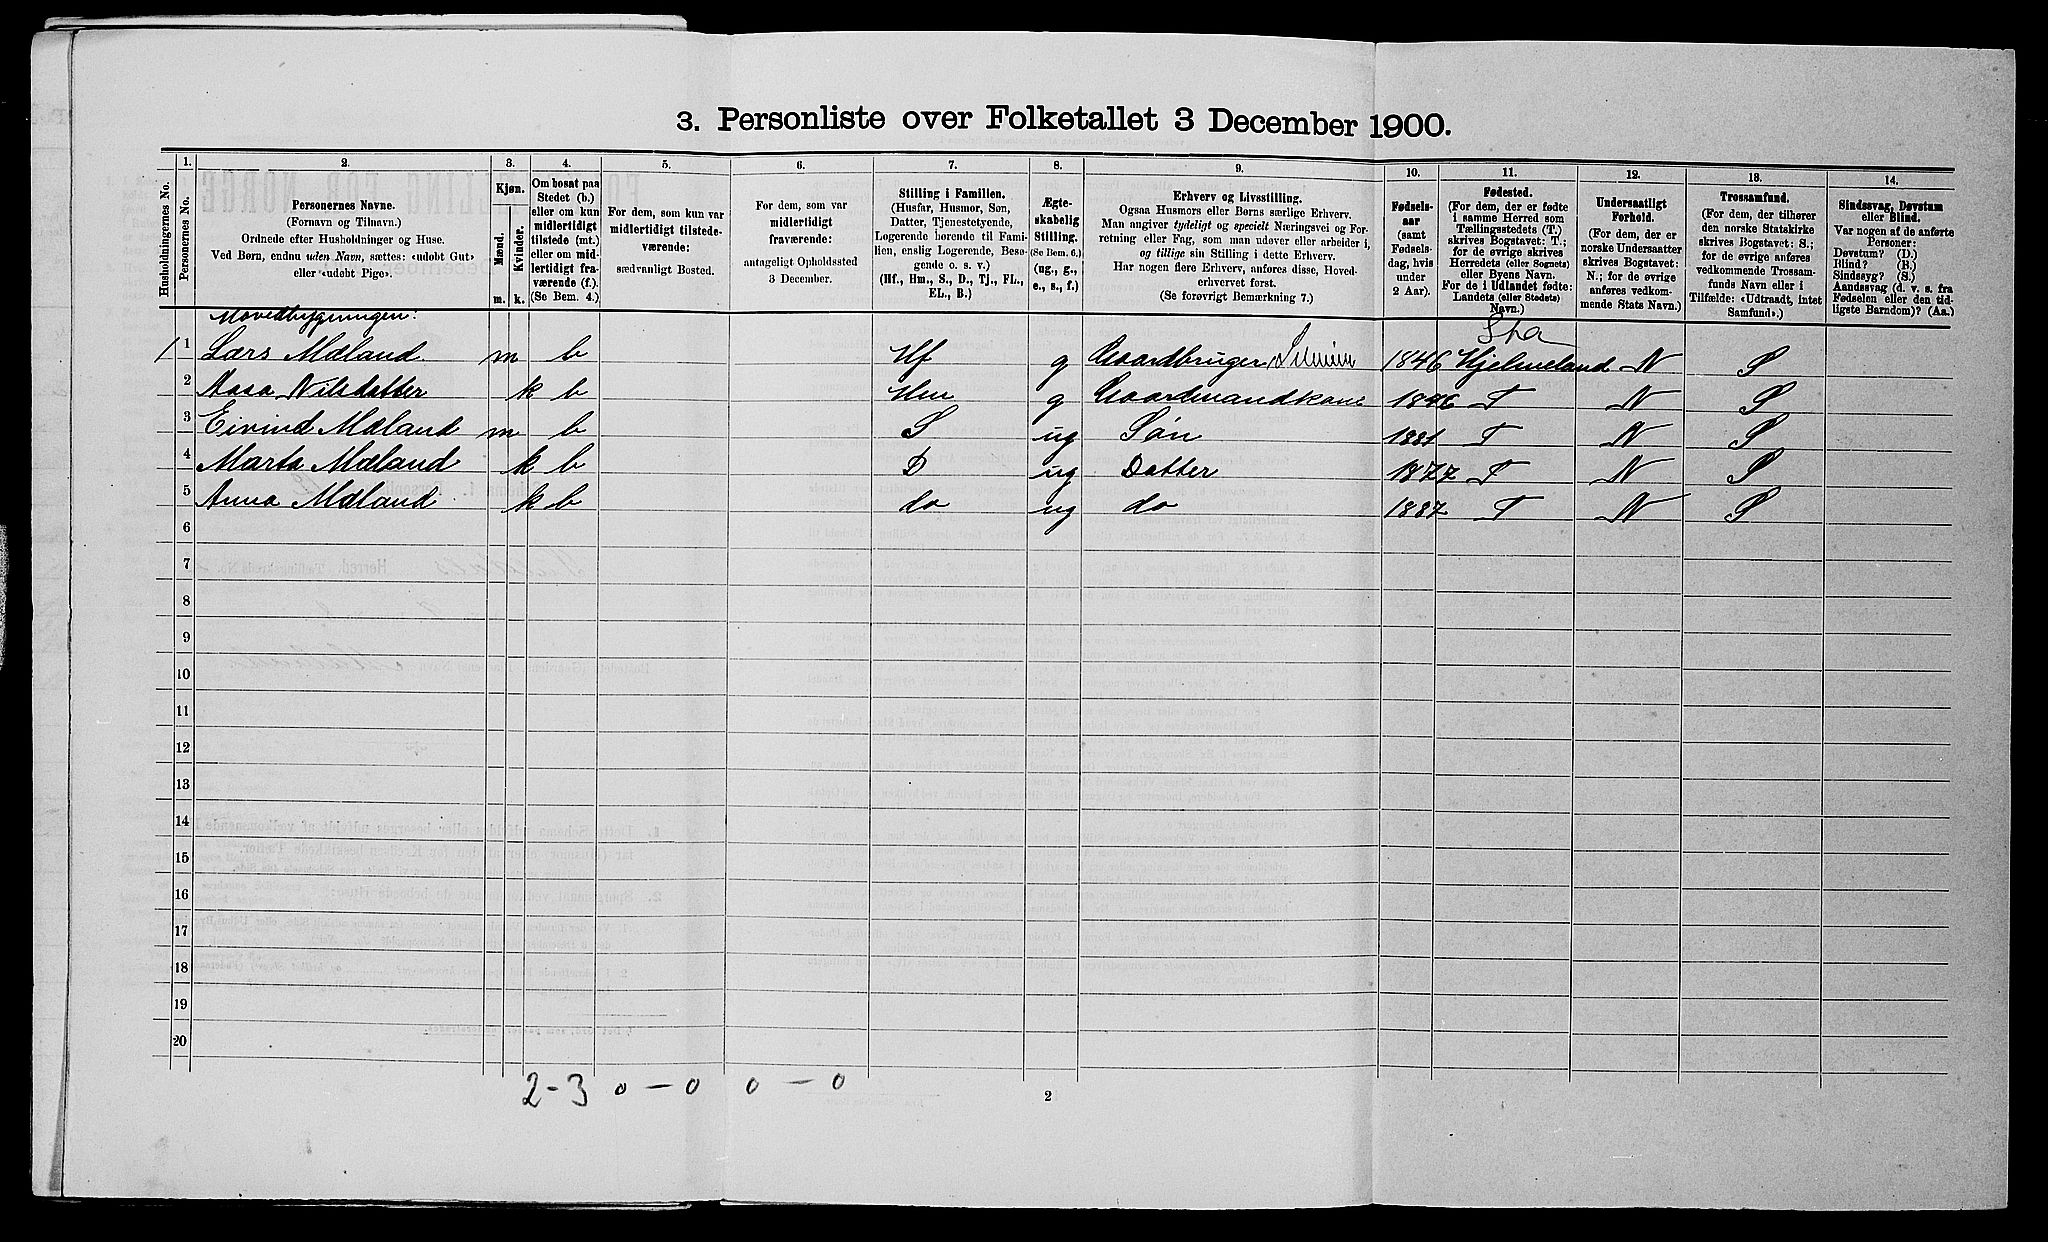 3. Personliste over Folketallet 3 December 1900.
Husholdningernes No.
1.
Personernes No.
2.
Personernes Navne.
(Fornavn og Tilnavn.)
Ordnede efter Husholdninger og Huse.
Ved Børn, endnu uden Navn, sættes: «udøbt Gut»
eller «udøbt Pige».
3.
Kjøn.
Mænd.
Kvinder.
m. k.
4.
Om bosat paa
Stedet (b.)
eller om kun
midlertidigt
tilstede (mt.)
eller om mid-
lertidigt fra-
værende (f.).
(Se Bem. 4.)
5.
For dem, som kun var
midlertidigt tilstede-
værende:
sædvanligt Bosted.
6.
For dem, som var
midlertidigt
fraværende:
antageligt Opholdssted
3 December.
7.
Stilling i Familien.
(Husfar, Husmor, Søn,
Datter, Tjenestetyende,
Logerende hørende til Fami-
lien, enslig Logerende, Besø-
gende o. s. v.)
(Hf., Hm., S., D., Tj., FL.,
EL., B.)
8.
Ægte-
skabelig
Stilling.
(Se Bem. 6.)
(ug., g.,
e., s., f.)
9.
Erhverv og Livsstilling.
Ogsaa Husmors eller Børns særlige Erhverv.
Man angiver tydeligt og specielt Næringsvei og For-
retning eller Fag, som man udøver eller arbeider i,
og tillige sin Stilling i dette Erhverv.
Har nogen flere Erhverv, anføres disse, Hoved-
erhvervet først.
(Se forøvrigt Bemærkning 7.)
10.
Fødsels-
aar
(samt
Fødsels-
dag, hvis
under
2 Aar).
11.
Fødested.
(For dem, der er fødte
i samme Herred som
Tællingsstedets (T.)
skrives Bogstavet: T.;
for de øvrige skrives
Herredets (eller Sognets)
eller Byens Navn.
For de i Udlandet fødte:
Landets (eller Stedets)
Navn.)
12.
Undersaatligt
Forhold.
(For dem, der er
norske Undersaatter
skrives Bogstavet:
N.; for de øvrige
anføres vedkom-
mende Stats Navn.)
13.
Trossamfund.
(For dem, der tilhører
den norske Statskirke
skrives Bogstavet: S.;
for de øvrige anføres
vedkommende Trossam-
funds Navn eller i
Tilfælde: «Udtraadt, intet
Samfund».)
14.
Sindssvag, Døvstum
eller Blind.
Var nogen af de anførte
Personer:
Døvstum? (D.)
Blind? (B.)
Sindssyg? (S.)
Aandssvag (d. v. s. fra
Fødselen eller den tid-
ligste Barndom)? (Aa.)
Hovedbygningen:
Sta
1 1 Lars Mæland m b Hf g Gaardbruger Selveier 1846 Hjelmeland N S
2 Aasa Nilsdatter k b Hm g Gaardmandkone 1846 T N S
3 Eivind Mæland m b S ug Søn 1881 T N S
4 Marta Mæland k b D ug Datter 1877 T N S
5 Anna Mæland k b do ug do 1887 T N S
6
7
8
9
10
11
12
13
14
15
16
17
18
19
20
2-3 0-0 0-0
2